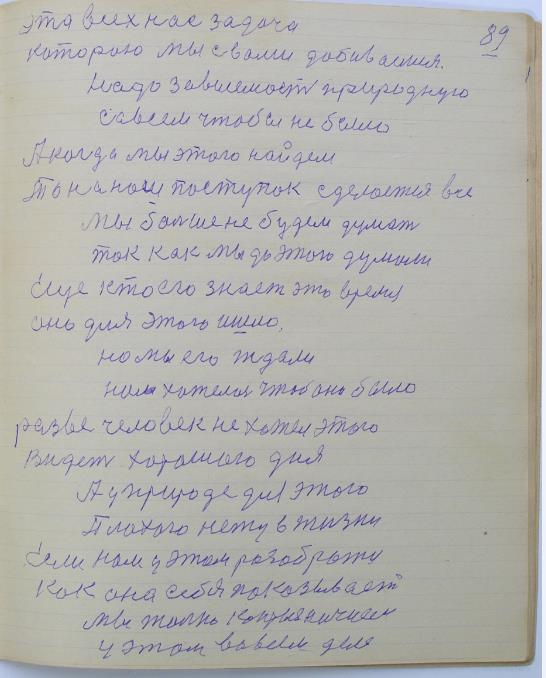 89
эта всех нас задача
которою мы с вами добиваемся.
надо зависемост природную
савсем чтобы не было
А когда мы этого найдем
То на наш поступок сделоется все
мы больше не будем думат
так как мы до этого думали
Еще кто его знает это время
оно для этого ишло,
но мы его ждали
нам хотелос чтоб оно было
разве человек не хотел этого
Видет хорошого дня
А у природе для этого
Плохого нету в жизни
Если нам у этом разобрат
как она себя показывает
мы толко
у этом во всем деле